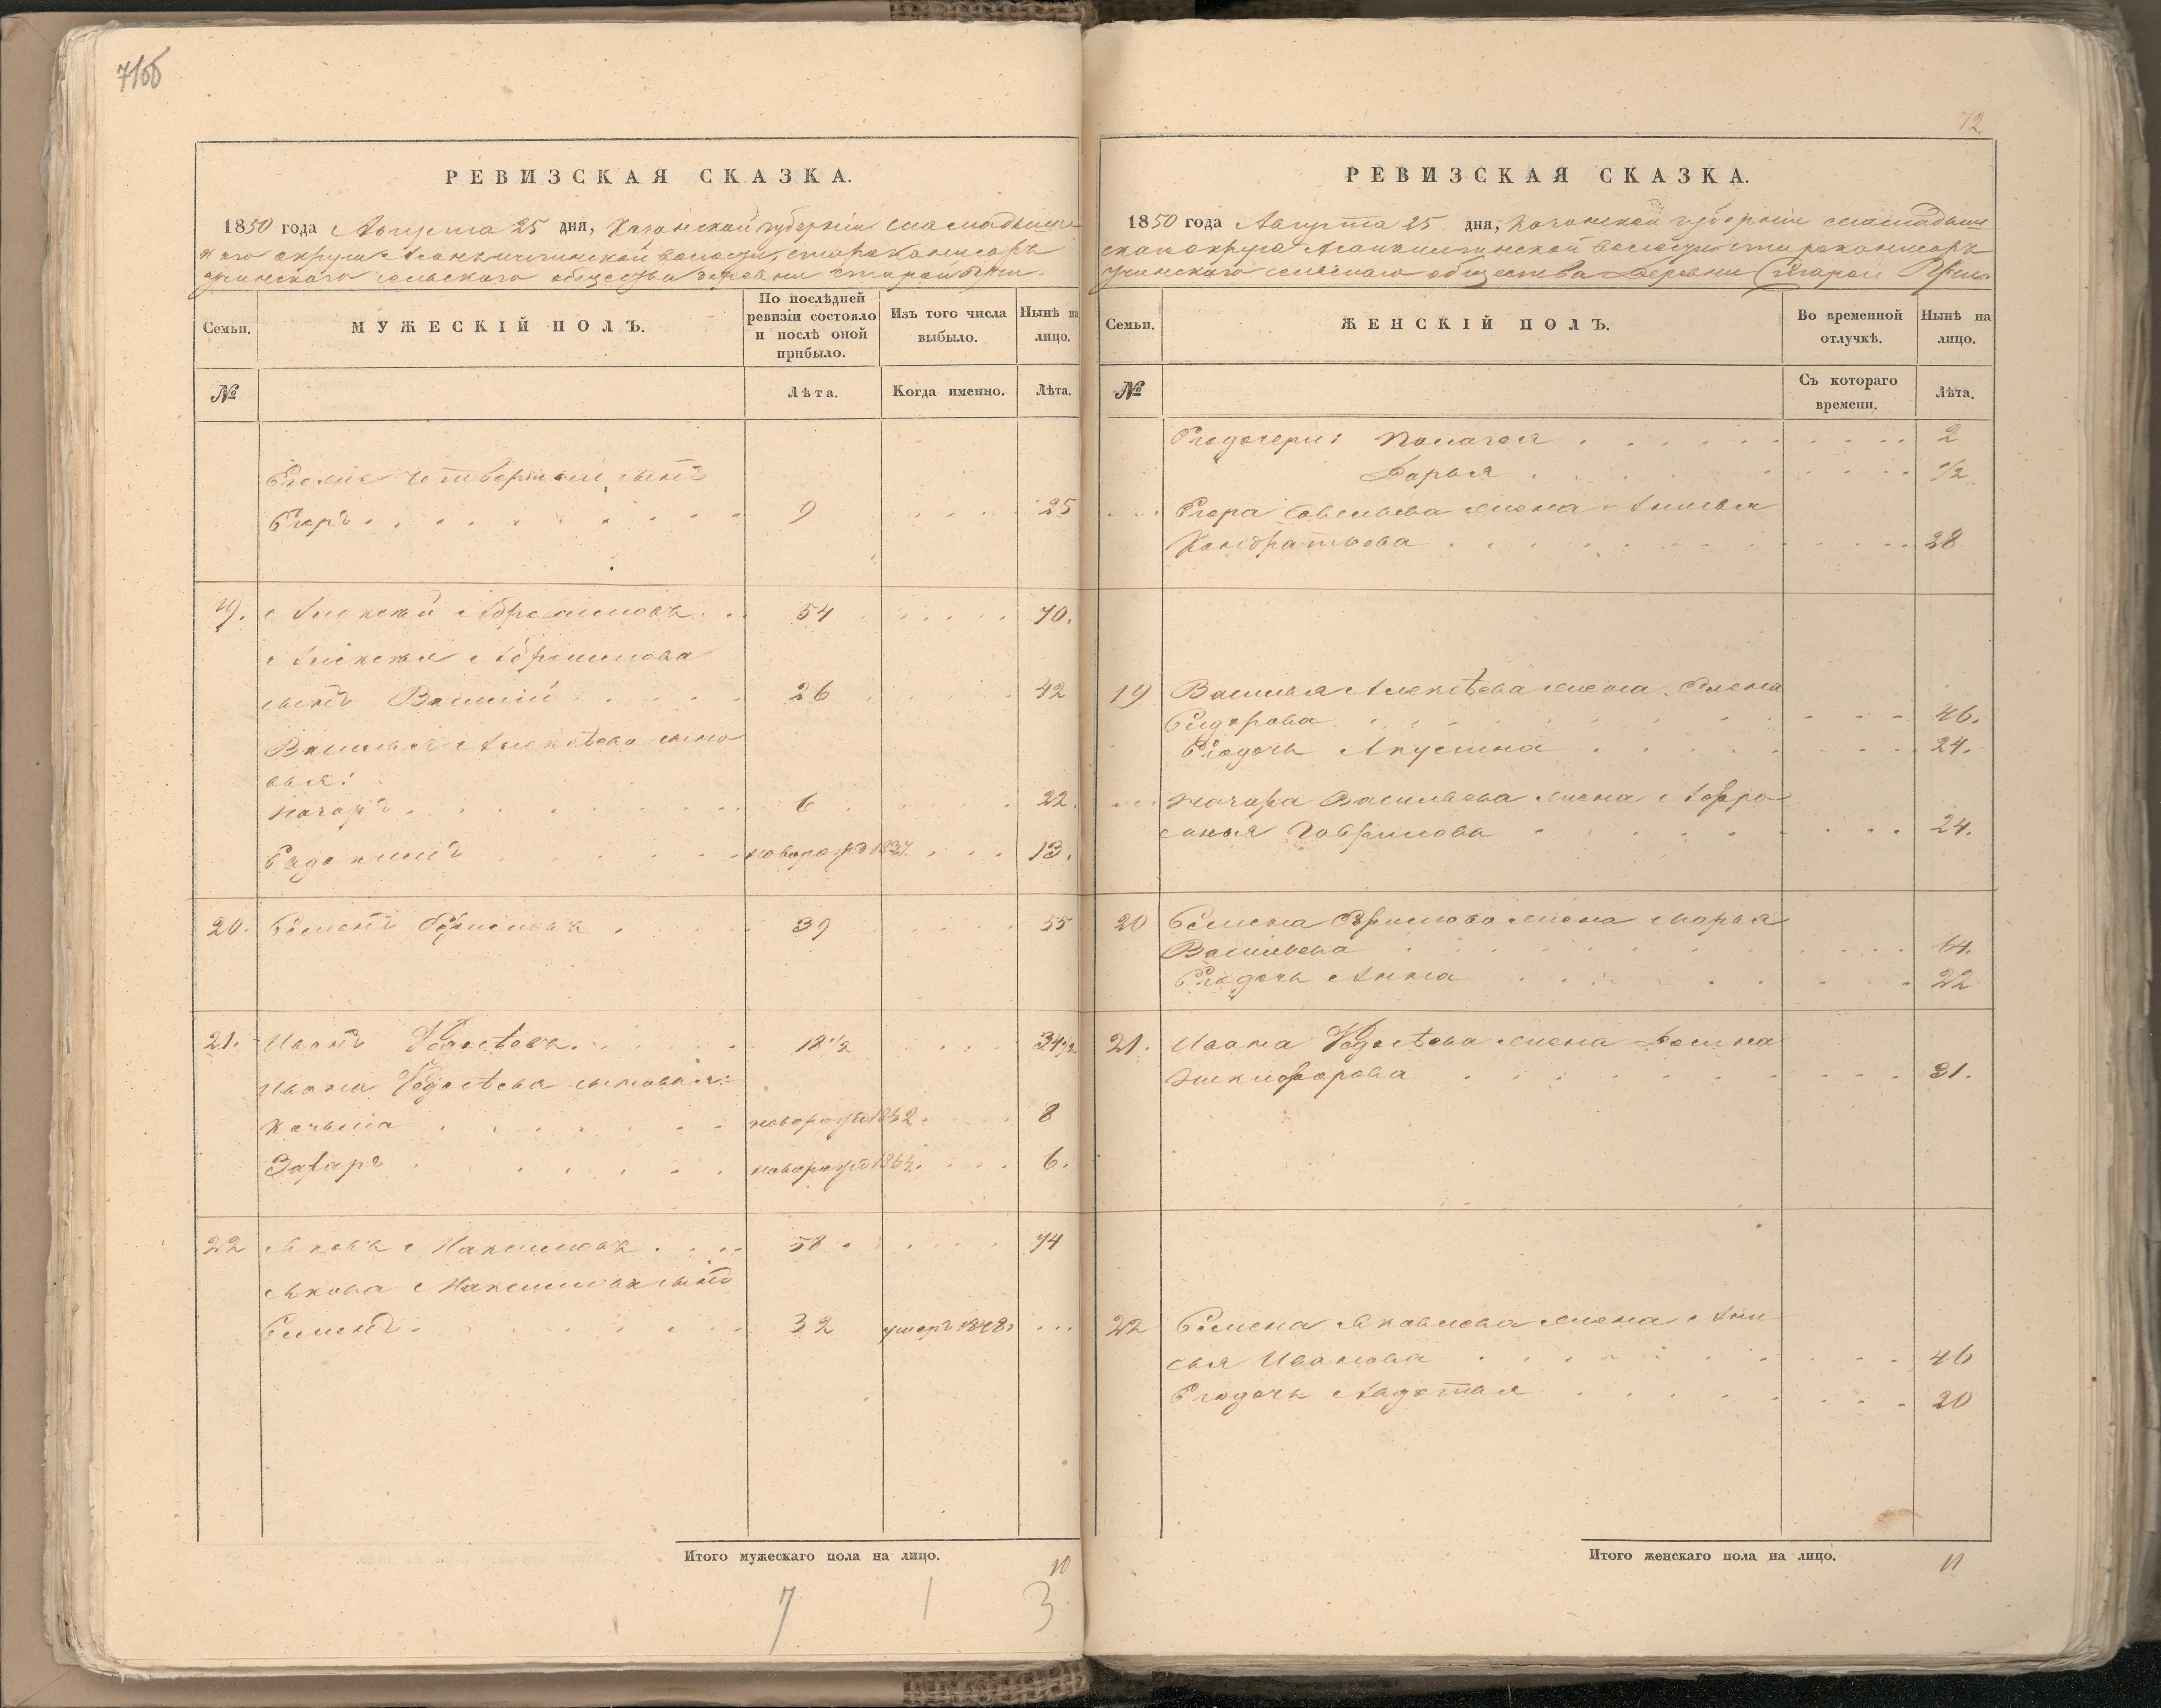 71об
РЕВИЗСКАЯ СКАЗКА.
1850 года Августа 25 дня, Казанской губернии
округа волости,
сельского общества деревни Старой
Семьи.
МУЖЕСКІЙ ПОЛЪ.
По послѣдней ревизіи состояло и послѣ оной прибыло.
Изъ того числа выбыло.
Нынѣ на лицо.
№
Лѣта.
Когда именно.
Лѣта.
четвертый сынъ
Егоръ 9 25
19. Алексѣй Абрамовъ 54 70.
Алексѣя Абрамова
сынъ Василій 26 42
Василья Алексѣева сыно
вья:
Назаръ 6 22.
новорожд 1837. 13.
20. Семенъ 39 55
21. Иванъ Ѳедосѣевъ 18 1/2 34 1/2
Ивана Ѳедосѣева сыновья:
Козьма новорожд 1842. 8
Захаръ новорожд 1844. 6.
22 Яковъ Максимовъ 58 74
Якова Максимова сынъ
Семенъ 32 умеръ 1848. ...
Итого мужескаго пола на лицо. 10
7 1 3
72
РЕВИЗСКАЯ СКАЗКА.
1850 года Августа 25 дня, Казанской губерніи
скаго округа волости
сельскаго общества деревни Старой
Семьи.
ЖЕНСКІЙ ПОЛЪ.
Во временной отлучкѣ.
Нынѣ на лицо.
№
Съ котораго времени.
Лѣта.
Егодочери: Палагея 2
Дарья 1/2
Егора Савельева жена
Кондратьева 28
19 Василья Алексѣева жена Елена
Сидорова 46.
Егодочь Акулина 24.
Назара Васильева жена Афро
синья Гаврилова 24.
20 Семена жена Марья
Васильева 64.
Егодочь Анна 22
21. Ивана Ѳедосѣева жена
Никифорова 31.
22 Семена Яковлева жена Ани
сья Иванова 46
Егодочь 20
Итого женскаго пола на лицо. 11